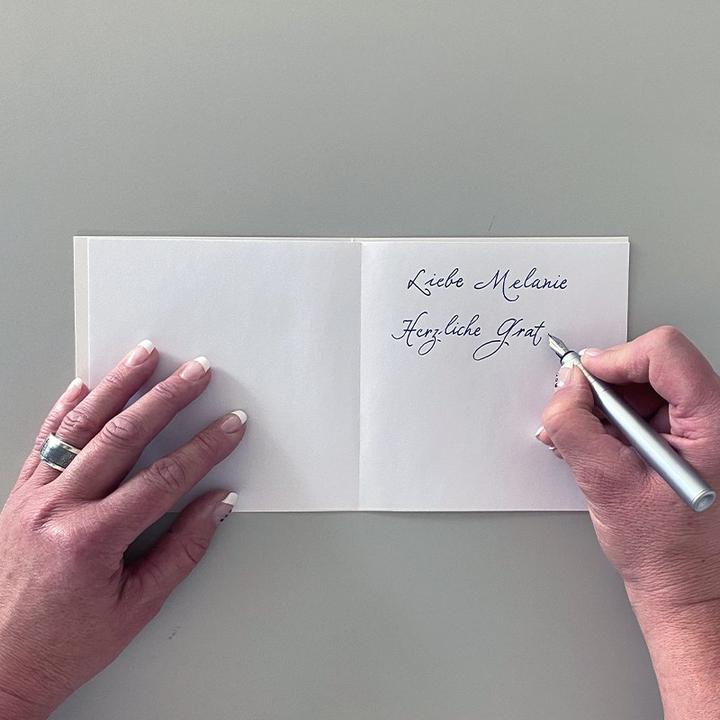 Liebe Melanie
Herzliche Grat